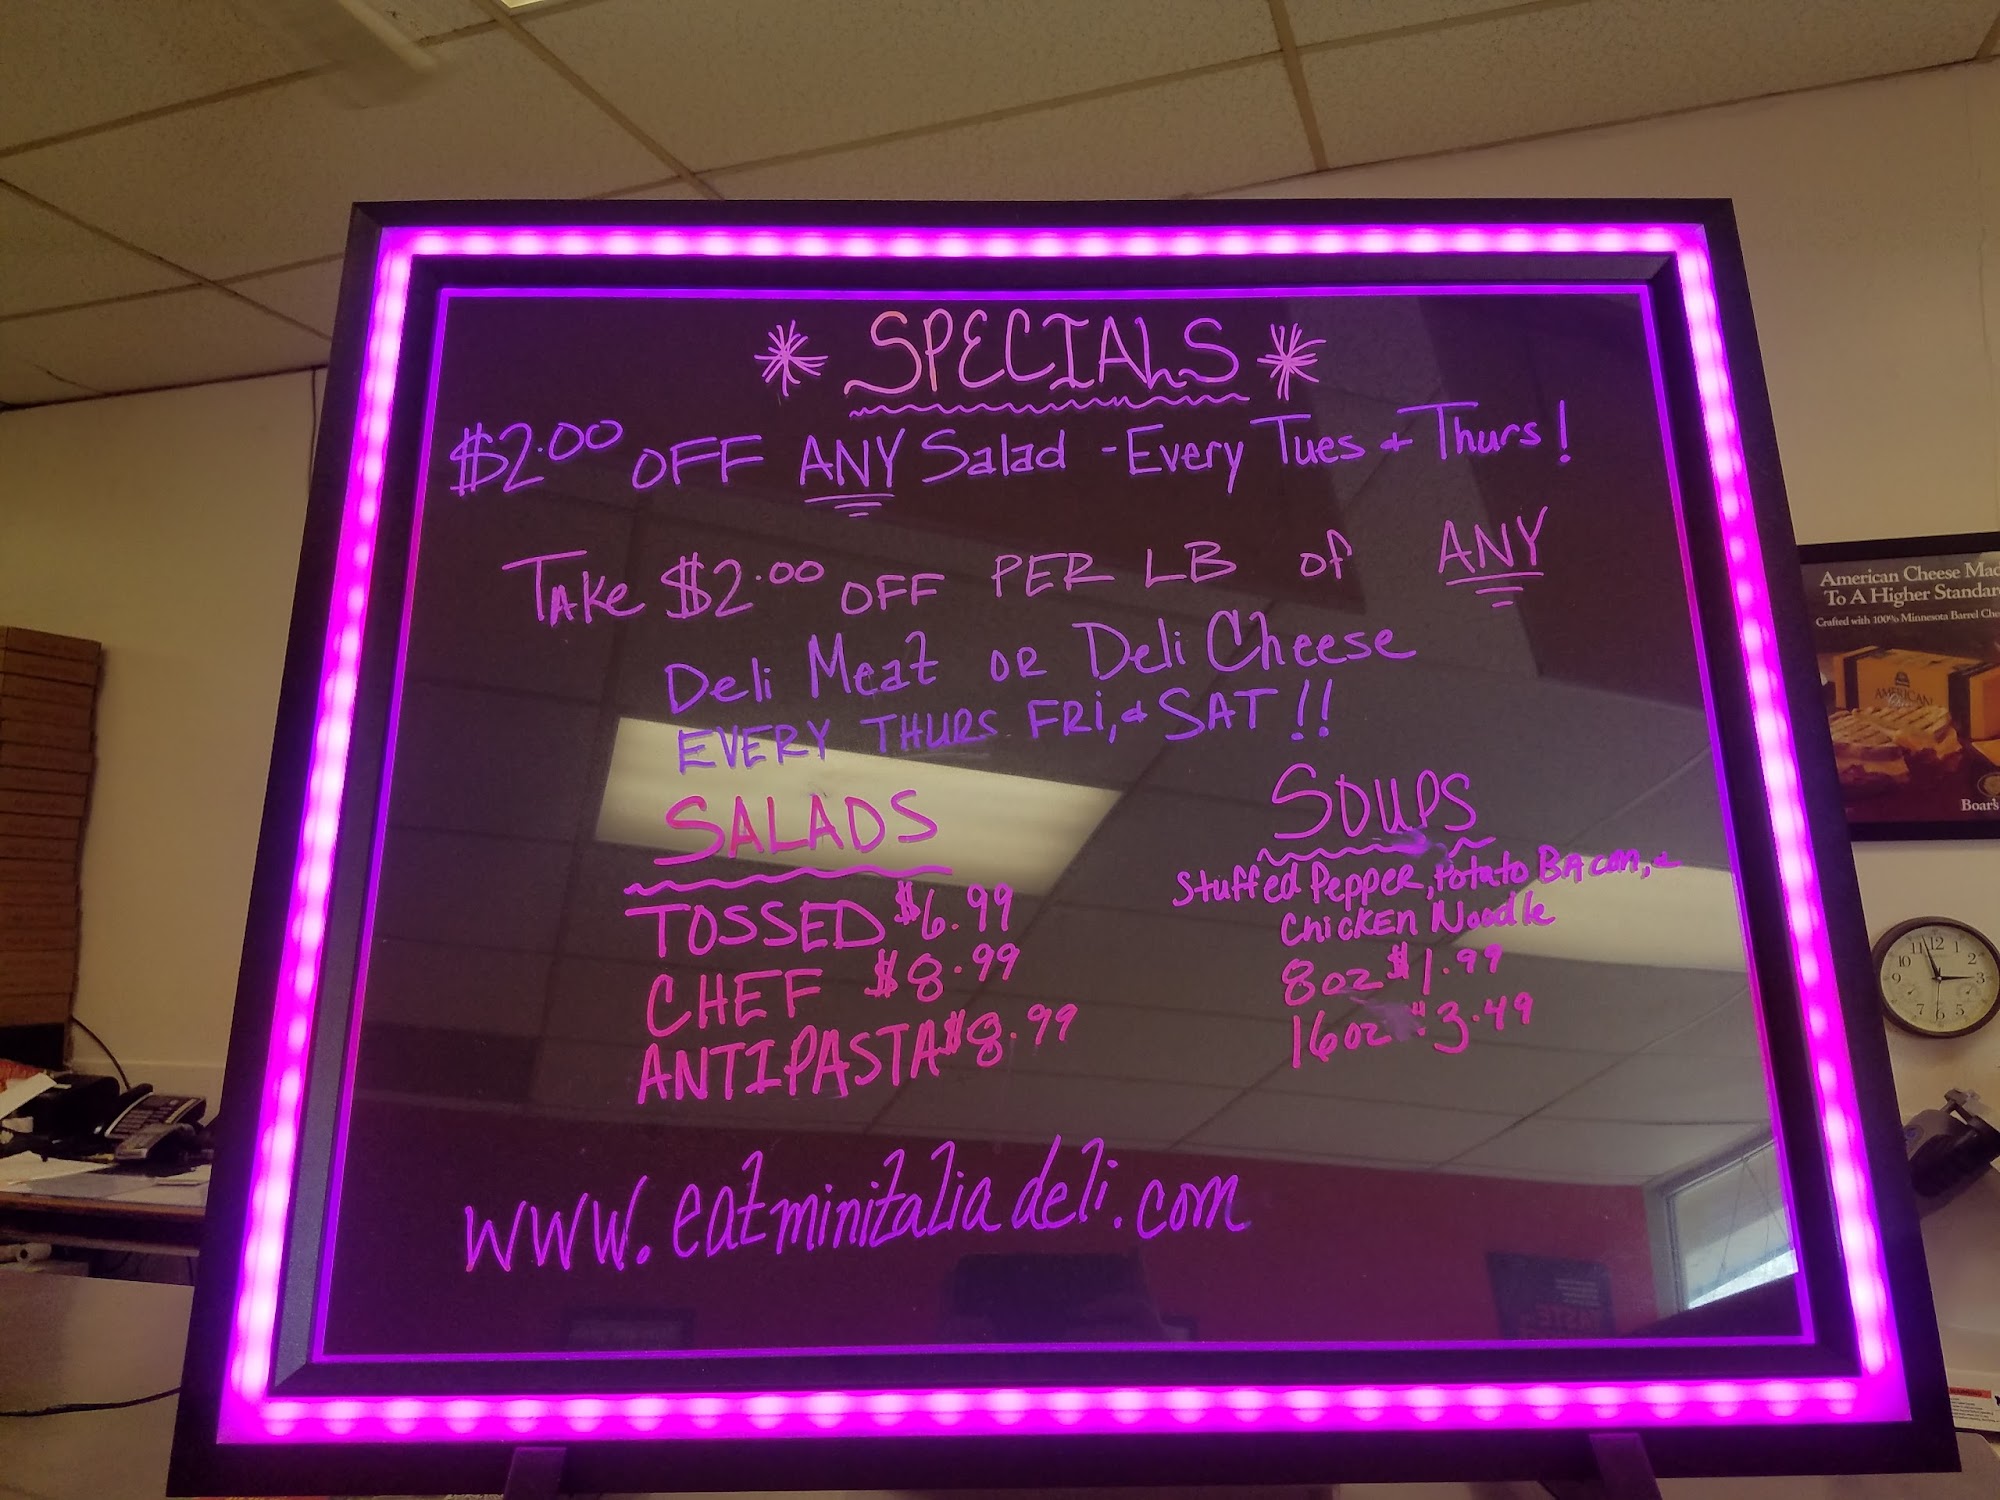 * SPECIALS *
$2.00 OFF ANY Salad - Every Tues + Thurs!
Take $2.00 OFF PER LB of ANY
Deli Meat OR Deli Cheese
EVERY THURS. FRI, + SAT!!
SALADS
TOSSED $6.99
CHEF $8.99
ANTIPASTA $8.99
SOUPS
Stuffed Pepper, Potato Bacon, +
Chicken Noodle
8oz $1.99
16oz $3.49
www.eatminitaliadeli.com
American Cheese Mad
To A Higher Standar
Crafted with 100% Minnesota Barrel Che
AMERICAN
Boar's
12
1
2
3
5
6
7
9
10
11